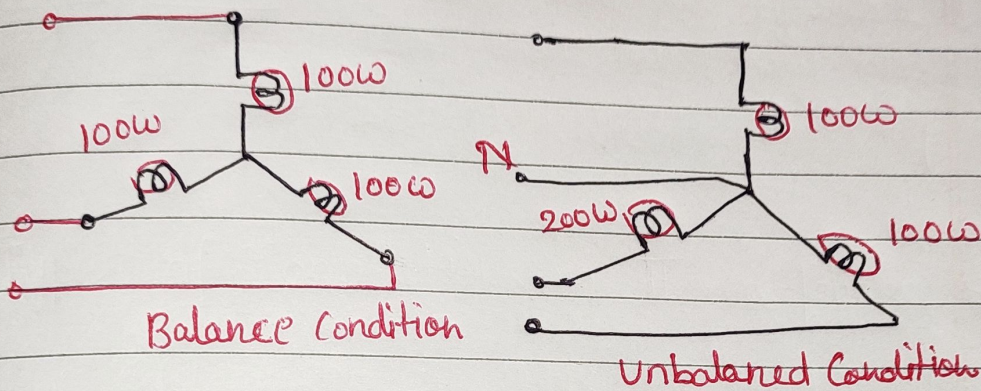 100W
100W
100W
Balance Condition
100W
N
200W
100W
Unbalaned Condition